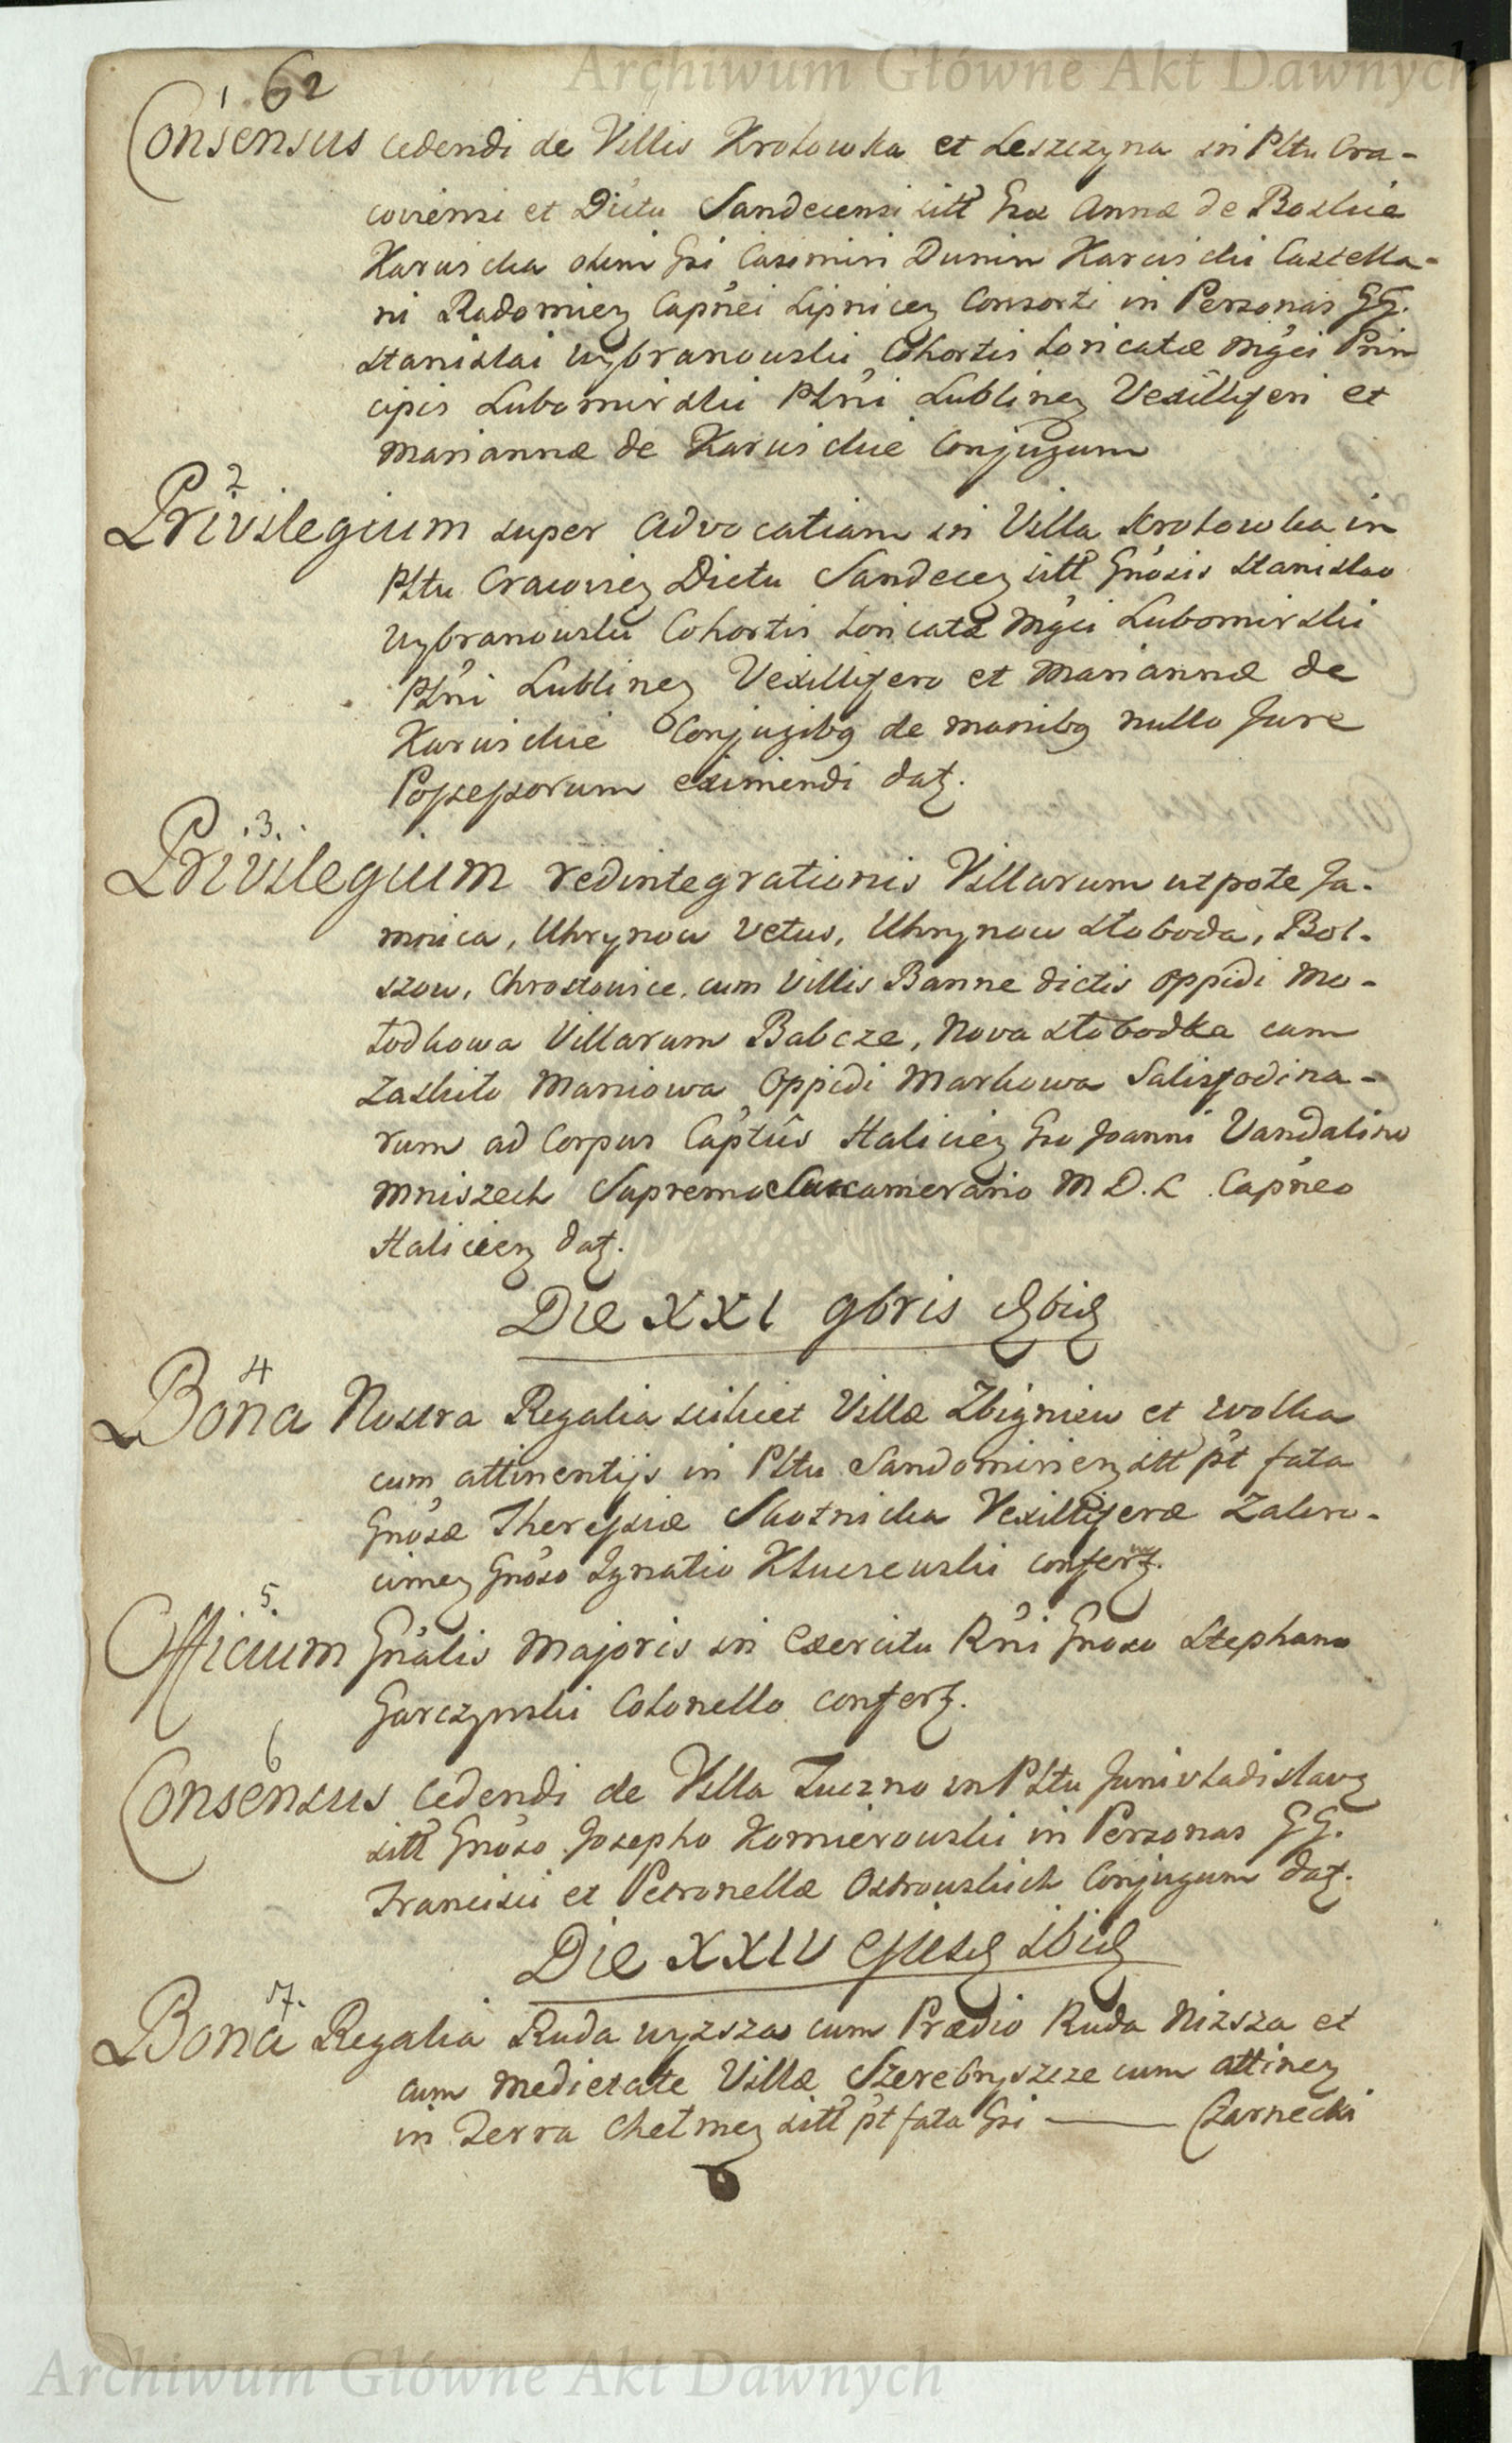 Archiwum Główne Akt Dawnych
62
1
Consensus cedendi de Villis Krolowka et Leszczyna in Pltu Cra-
coviensi et Dictu Sandecensi sitt Gsæ Annæ de Boskie
Karwicka olim Gsi Casimiri Dunin Karwicki Castella-
ni Radomien Capnei Lipnicen Consorti in Personas GG.
Stanislai Wybranowski Cohortis Loricatæ Mgci Prin
cipis Lubomirski Plni Lublinen Vexilliferi et
Mariannæ de Karwickie Conjugum
2
Privilegium super Advocatiam in Villa Krolowka in
Pltu Cracovien Dictu Sandecen sitt Gnosis Stanislao
Wybranowski Cohortis Loricatæ Mgci Lubomirski
Plni Lublinen Vexillifero et Mariannæ de
Karwickie Conjugibq de manibq nullo Jure
Possessorum eximendi datz.
.3.
Privilegium redintegrationis Villarum utpote Ja-
mnica, Uhrynow Vetus, Uhrynow Sloboda, Bol-
szow, Chrostowice, cum Villis Banne dictis Oppidi Mo-
lodkowa Villarum Babcze, Nova Slobodka cum
Zaskito Maniowa Oppidi Markowa Salisfodina-
rum ad Corpus Captûs Halicien Gso Joanni Vandalino
Mniszech Supremo Succamerario M D. L Capneo
Halicien datz.
Die XXI 9bris
4
Bona Nostra Regalia scilicet Villæ Zbigniew et Wolka
cum attinentijs in Pltu Sandomirien sitt pt fata
Gnosæ Theressiæ Skotnicka Vexilliferæ Zakro-
cimen Gnoso Ignatio Kluczewski confertz.
5.
Officium Gnalis Majoris in Exercitu Rni Gnoso Stephano
Garczynski Colonello confertz.
6
Consensus cedendi de Villa Tuczno in Pltu Junivladislavz
sitt Gnoso Josepho Komierowski in Personas GG.
Francisci et Petronellæ Ostrowskich Conjugum datz.
Die XXIV ejusd ibid
7.
Bona Regalia Ruda wyzsza cum Prædio Ruda Nizsza et
cum medietate Villæ Szerebryszcze cum attinen
in Terra Chelmen sitt pt fata Gsi ——— Czarnecki
Archiwum Główne Akt Dawnych